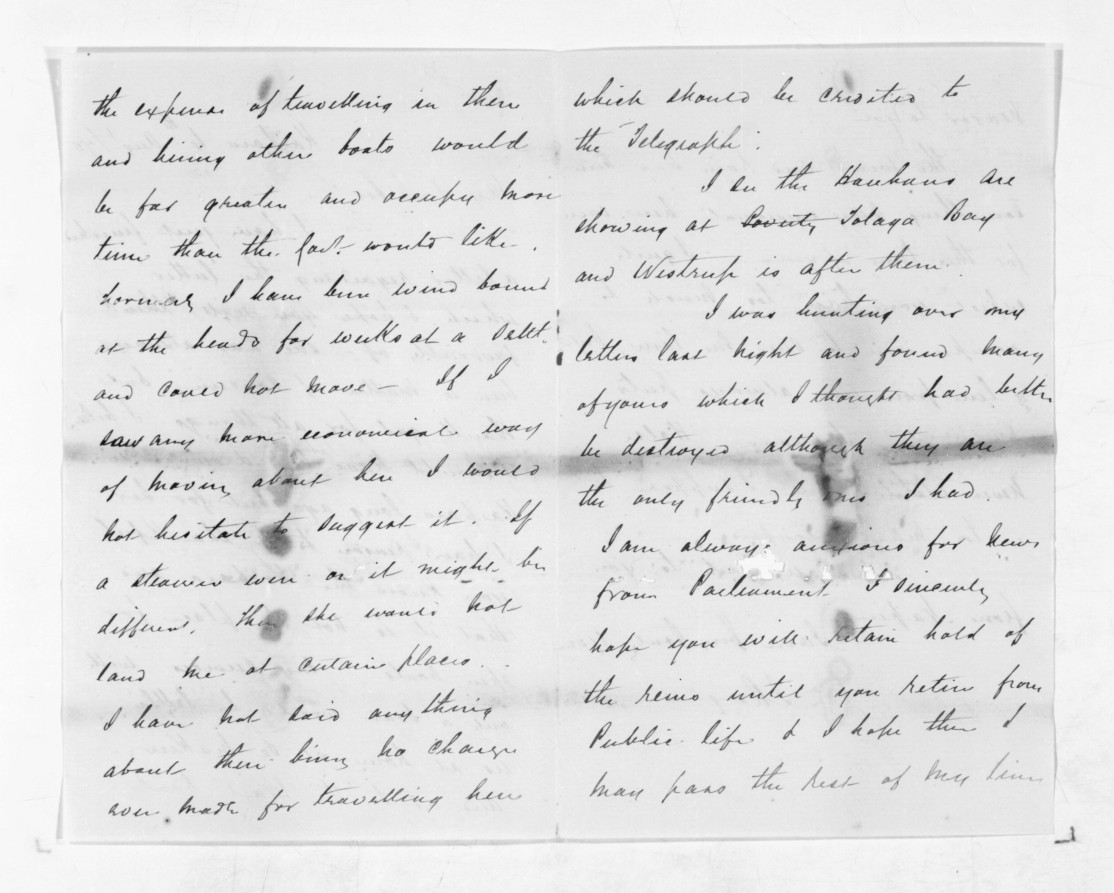 the expense of travelling in them
and hiring other boats would
be far greater and occupy more
time than the Govt. would like.
I have been wind bound
at the heads for weeks at a
and could not move — If I
saw any more economical way
of moving about here I would
not hesitate to suggest it. If
a steamer were on it might be
different. Then she would not
land me at certain places.
I have not said anything
about there being no charge
ever made for travelling here
which should be credited to
the Telegraph.
I see the Hauhaus are
showing at Poverty Tolaga Bay
and Westrup is after them.
I was hunting over my
letters last night and found many
of yours which I thought had better
be destroyed although they are
the only friendly ones I had.
I am always anxious for news
from Parliament I sincerely
hope you will retain hold of
the reins until you retire from
Public life & I hope then I
may pass the rest of my time